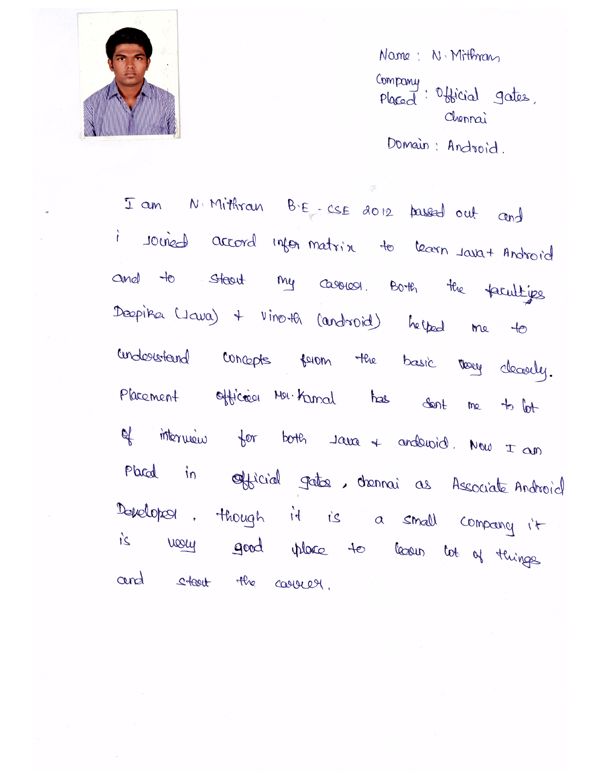 Name : N. Mithran
Company
Placed : Official gates,
Chennai
Domain : Android.
I am N. Mithran B.E - CSE 2012 passed out and
i Joined accord infor matrix to learn Java + Android
and to start my carrier. Both the faculties
Deepika (Java) + Vinoth (android) helped me to
understand concepts from the basic very clearly.
Placement officier Mr. Kamal has sent me to lot
of interview for both Java + android. Now I am
Placed in official gates, chennai as Associate Android
Developer. though it is a small company it
is very good place to learn lot of things
and start the carrier.